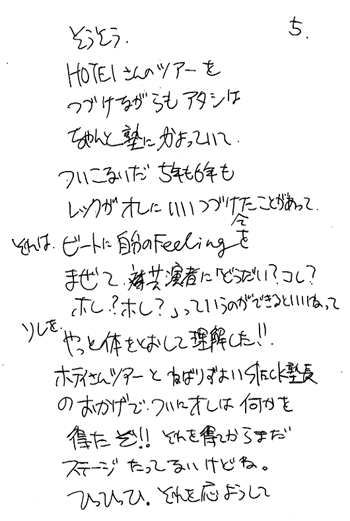 5.
そうそう.
HOTEIさんのツアーを
つづけながらもアタシは
ちゃんと塾にかよっていて.
ついこないだ 5年も6年も
レックがオレにいいつづけたことがあって.
それは. ビートに自分のFeeling全を
まぜて. 共演者に「どうだい？コレ？
ホレ？ホレ？」っていうのができるといいねって
ソレを. やっと体をとおして理解した!!
ホテイさんツアーと ねばりずよい 塾長
のおかげで. ついにオレは 何かを
得たぞ!! それを得てからまだ
ステージ たってないけどね。
ひっひっひ. それを応ようして